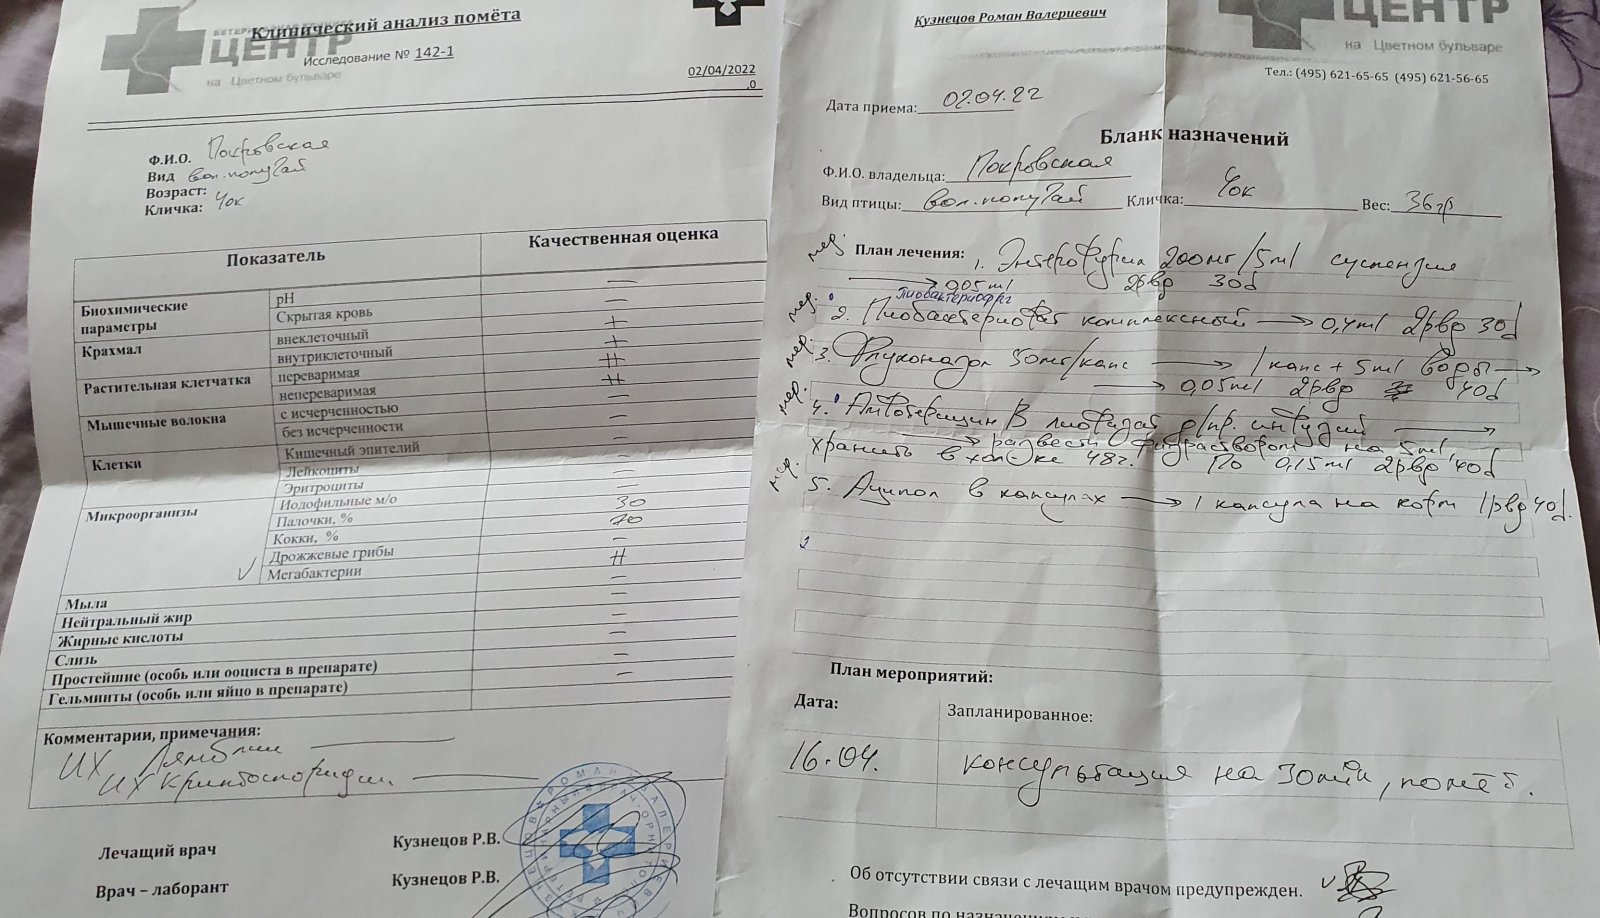 Клинический анализ помёта
ВЕТЕРИНАРНАЯ КЛИНИКА
ЦЕНТР
на Цветном бульваре
Исследование № 142-1
02/04/2022
,0
Ф.И.О. Покровская
Вид вол.попугай
Возраст:
Кличка: Чок
Показатель Качественная оценка
Биохимические параметры pH —
Скрытая кровь —
Крахмал внеклеточный +
внутриклеточный +
Растительная клетчатка переваримая ++
непереваримая ++
Мышечные волокна с исчерченностью —
без исчерченности —
Клетки Кишечный эпителий —
Лейкоциты —
Эритроциты —
Микроорганизы Иодофильные м/о —
Палочки, % 30
Кокки, % 70
Дрожжевые грибы —
Мегабактерии ++
Мыла —
Нейтральный жир —
Жирные кислоты —
Слизь —
Простейшие (особь или ооциста в препарате) —
Гельминты (особь или яйцо в препарате) —
Комментарии, примечания:
ИХ Лямблии —
ИХ Криптоспоридии —
Лечащий врач Кузнецов Р.В.
Врач – лаборант Кузнецов Р.В.
Кузнецов Роман Валериевич
ЦЕНТР
на Цветном бульваре
Тел.: (495) 621-65-65 (495) 621-56-65
Дата приема: 02.04.22
Бланк назначений
Ф.И.О. владельца: Покровская
Вид птицы: вол.попугай Кличка: Чок Вес: 36гр
План лечения: 1. Энтерофурил 200мг/5ml суспензия
→ 0,05ml 2рвд 30d
Пиобактериофаг
2. Пиобактериофаг комплексный → 0,4ml 2рвд 30d
3. Флуконазол 50мг/капс → 1 капс + 5ml воды →
→ 0,05ml 2рвд 40d
4. Амфотерицин В лиофизат д/пр. инфузий →
→ развести физраствором на 5ml,
хранить в хол-ке 48г. По 0,15ml 2рвд 40d
5. Аципол в капсулах → 1 капсула на корм 1рвд 40d.
План мероприятий:
Дата: Запланированное:
16.04. консультация на зонди, помёт.
Об отсутствии связи с лечащим врачом предупрежден.